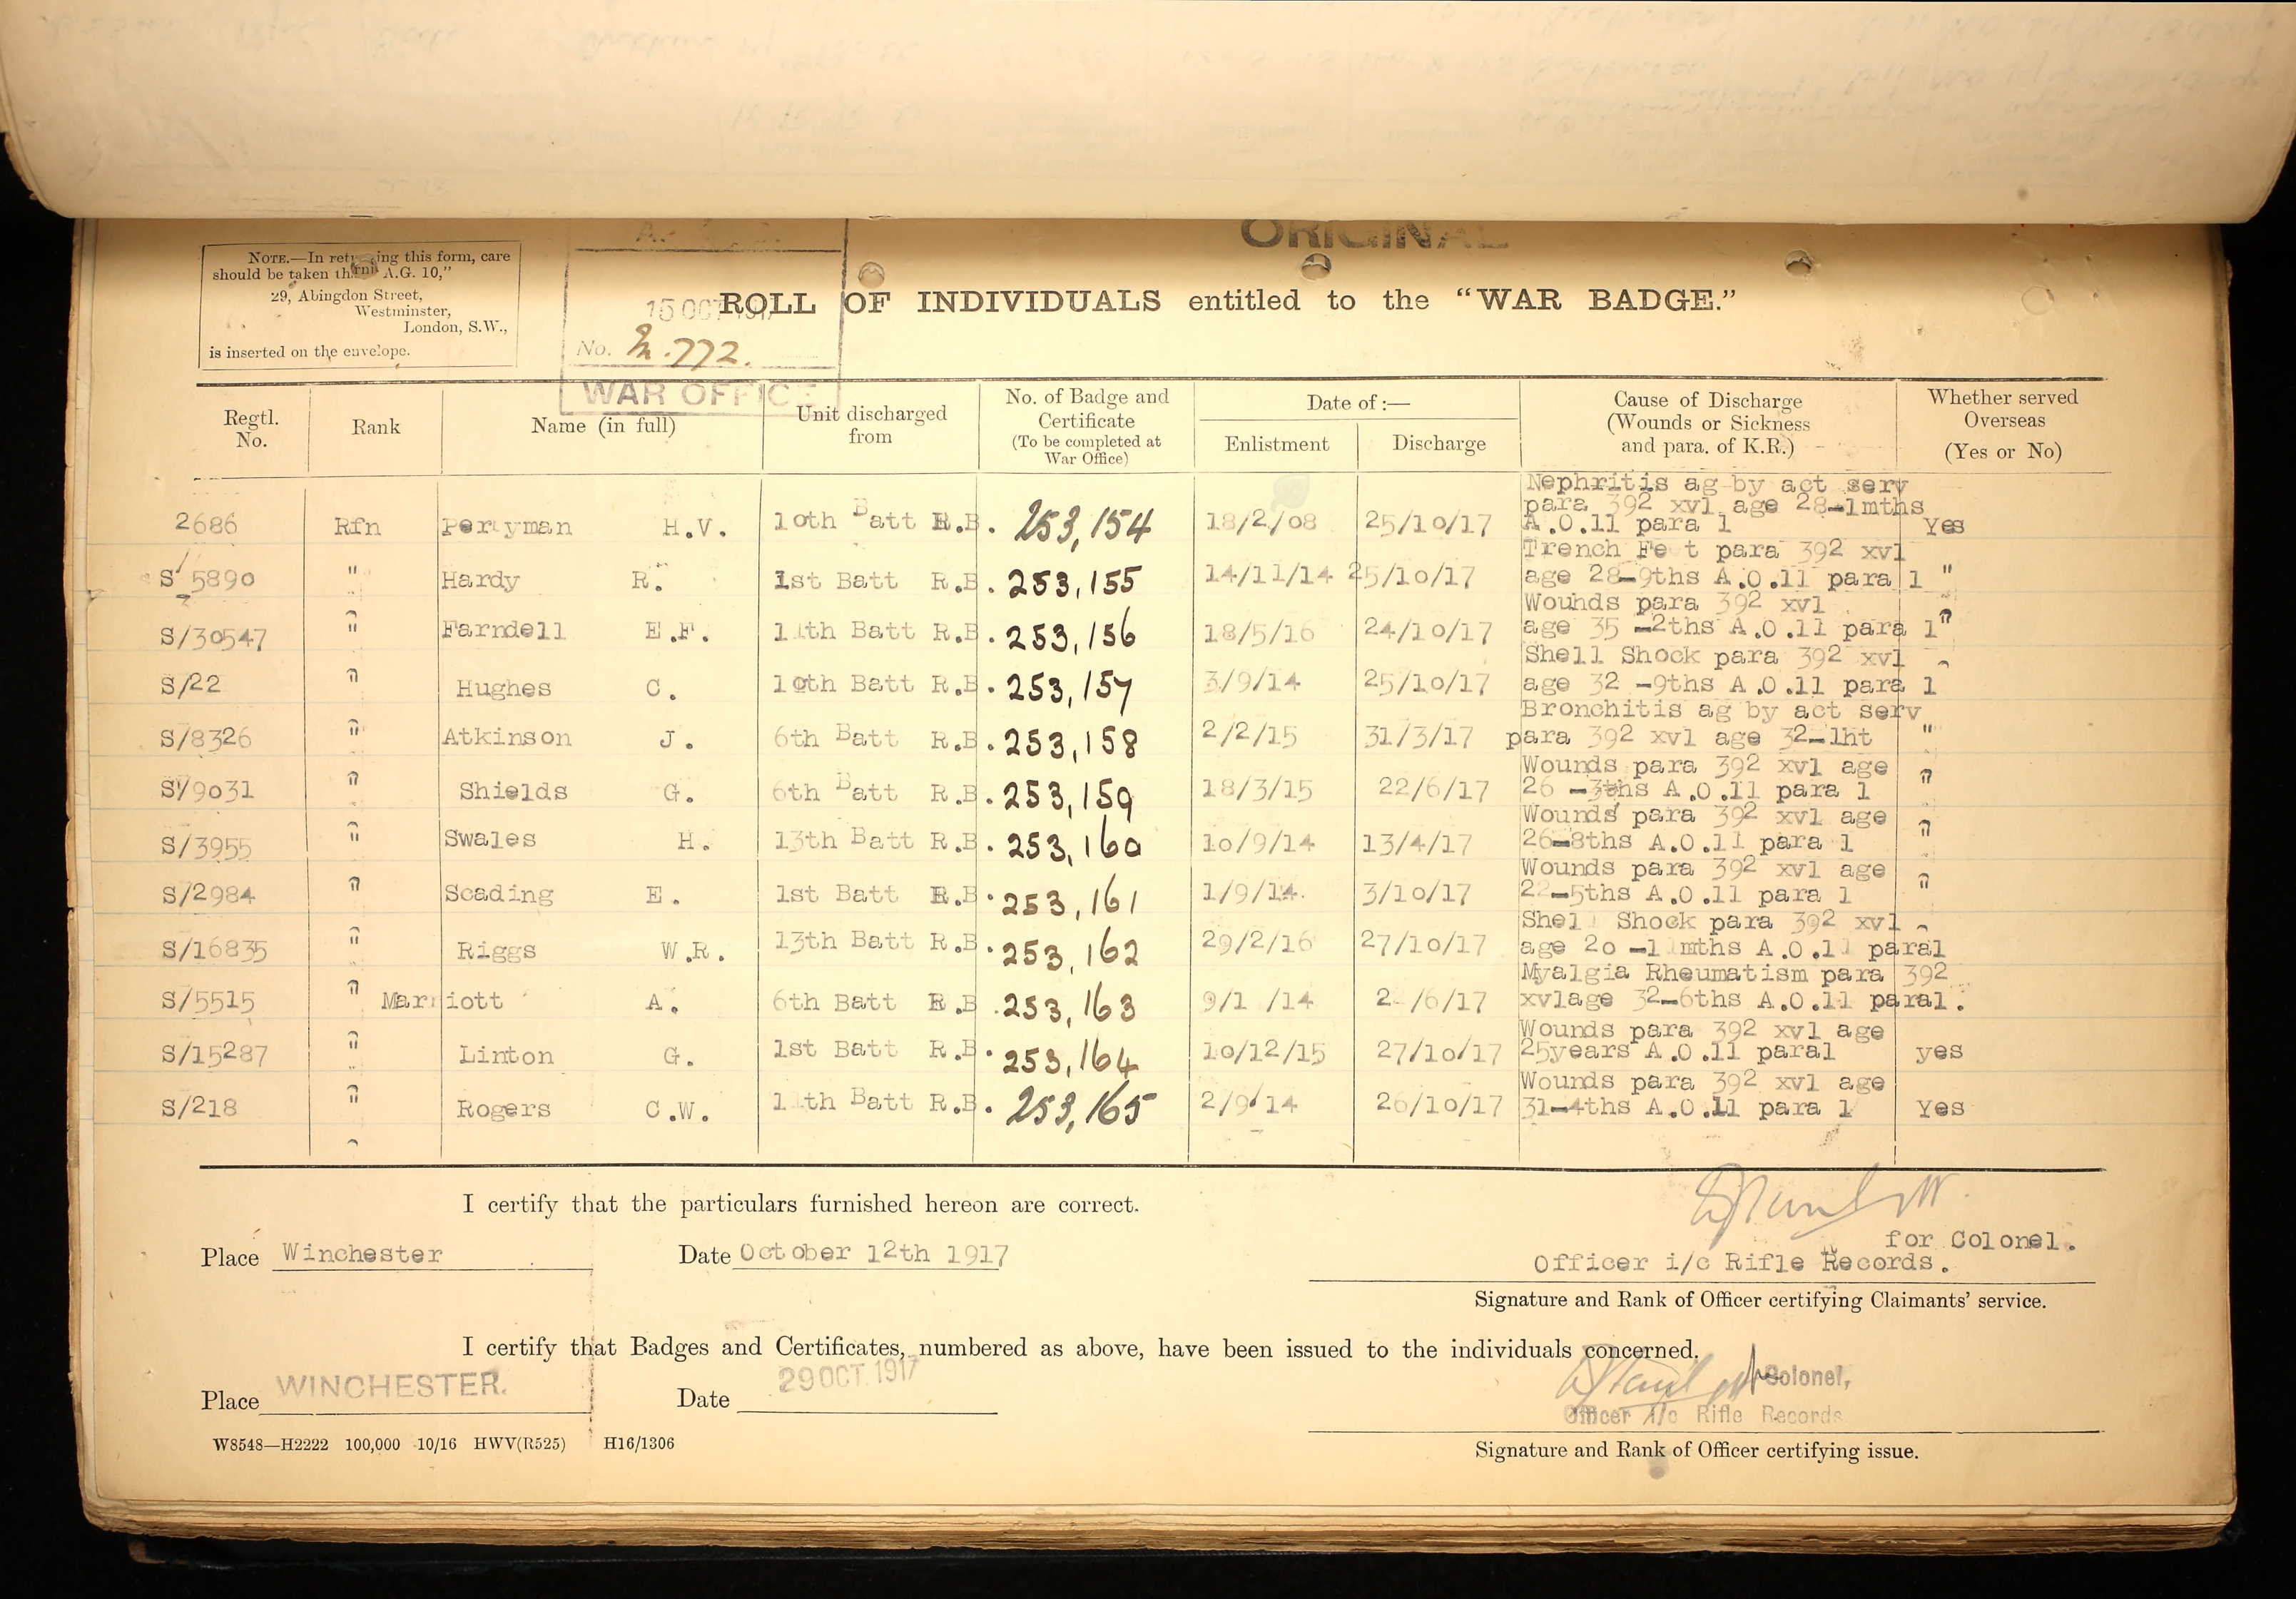 ORIGINAL
NOTE.—In returning this form, care
should be taken that "A.G. 10,"
29, Abingdon Street,
Westminster,
London, S.W.,
is inserted on the envelope.
15 OCT 1917
No. 772.
WAR OFFICE
ROLL OF INDIVIDUALS entitled to the "WAR BADGE."
Regtl. No. Rank Name (in full) Unit discharged from No. of Badge and Certificate (To be completed at War Office) Date of :— Enlistment Discharge Cause of Discharge (Wounds or Sickness and para. of K.R.) Whether served Overseas (Yes or No)
Nephritis ag by act serv
para 392 xvl age 28-1mths
2686 Rfn Perryman H.V. 10th Batt R.B. 253,154 18/2/08 25/10/17 A.O.11 para 1 Yes
Trench Feet para 392 xvl
S/5890 " Hardy R. 1st Batt R.B. 253,155 14/11/14 25/10/17 age 28-9ths A.O.11 para 1 "
Wounds para 392 xvl
S/30547 " Farndell E.F. 11th Batt R.B. 253,156 18/5/16 24/10/17 age 35 -2ths A.O.11 para 1 "
Shell Shock para 392 xvl
S/22 " Hughes C. 10th Batt R.B. 253,157 3/9/14 25/10/17 age 32 -9ths A.O.11 para 1
Bronchitis ag by act serv
S/8326 " Atkinson J. 6th Batt R.B. 253,158 2/2/15 31/3/17 para 392 xvl age 32-1ht "
Wounds para 392 xvl age
S/9031 " Shields G. 6th Batt R.B. 253,159 18/3/15 22/6/17 26 -3ths A.O.11 para 1 "
Wounds para 392 xvl age
S/3955 " Swales H. 13th Batt R.B. 253,160 10/9/14 13/4/17 26-8ths A.O.11 para 1 "
Wounds para 392 xvl age
S/2984 " Scading E. 1st Batt R.B. 253,161 1/9/14. 3/10/17 22-5ths A.O.11 para 1 "
Shell Shock para 392 xvl
S/16835 " Riggs W.R. 13th Batt R.B. 253,162 29/2/16 27/10/17 age 20 -11mths A.O.11 para1
Myalgia Rheumatism para 392
S/5515 " Marriott A. 6th Batt R.B. 253,163 9/1 /14 2 /6/17 xvlage 32-6ths A.O.11 para1.
Wounds para 392 xvl age
S/15287 " Linton G. 1st Batt R.B. 253,164 10/12/15 27/10/17 25years A.O.11 para1 yes
Wounds para 392 xvl age
S/218 " Rogers C.W. 11th Batt R.B. 253,165 2/9/14 26/10/17 31-4ths A.O.11 para 1 Yes
I certify that the particulars furnished hereon are correct.
for Colonel.
Place Winchester Date October 12th 1917 Officer i/c Rifle Records.
Signature and Rank of Officer certifying Claimants' service.
I certify that Badges and Certificates, numbered as above, have been issued to the individuals concerned.
Colonel,
Place WINCHESTER. Date 29 OCT. 1917 Officer i/c Rifle Records
W8548—H2222 100,000 10/16 HWV(R525) H16/1306
Signature and Rank of Officer certifying issue.